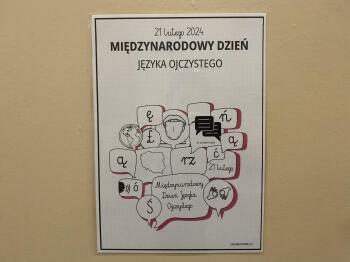 21 lutego 2024
MIĘDZYNARODOWY DZIEŃ
JĘZYKA OJCZYSTEGO
ę
ń
Ł
ą
ą
rz
ć
21 lutego
ó
Międzynarodowy
Dzień Języka
Ojczystego
Ś